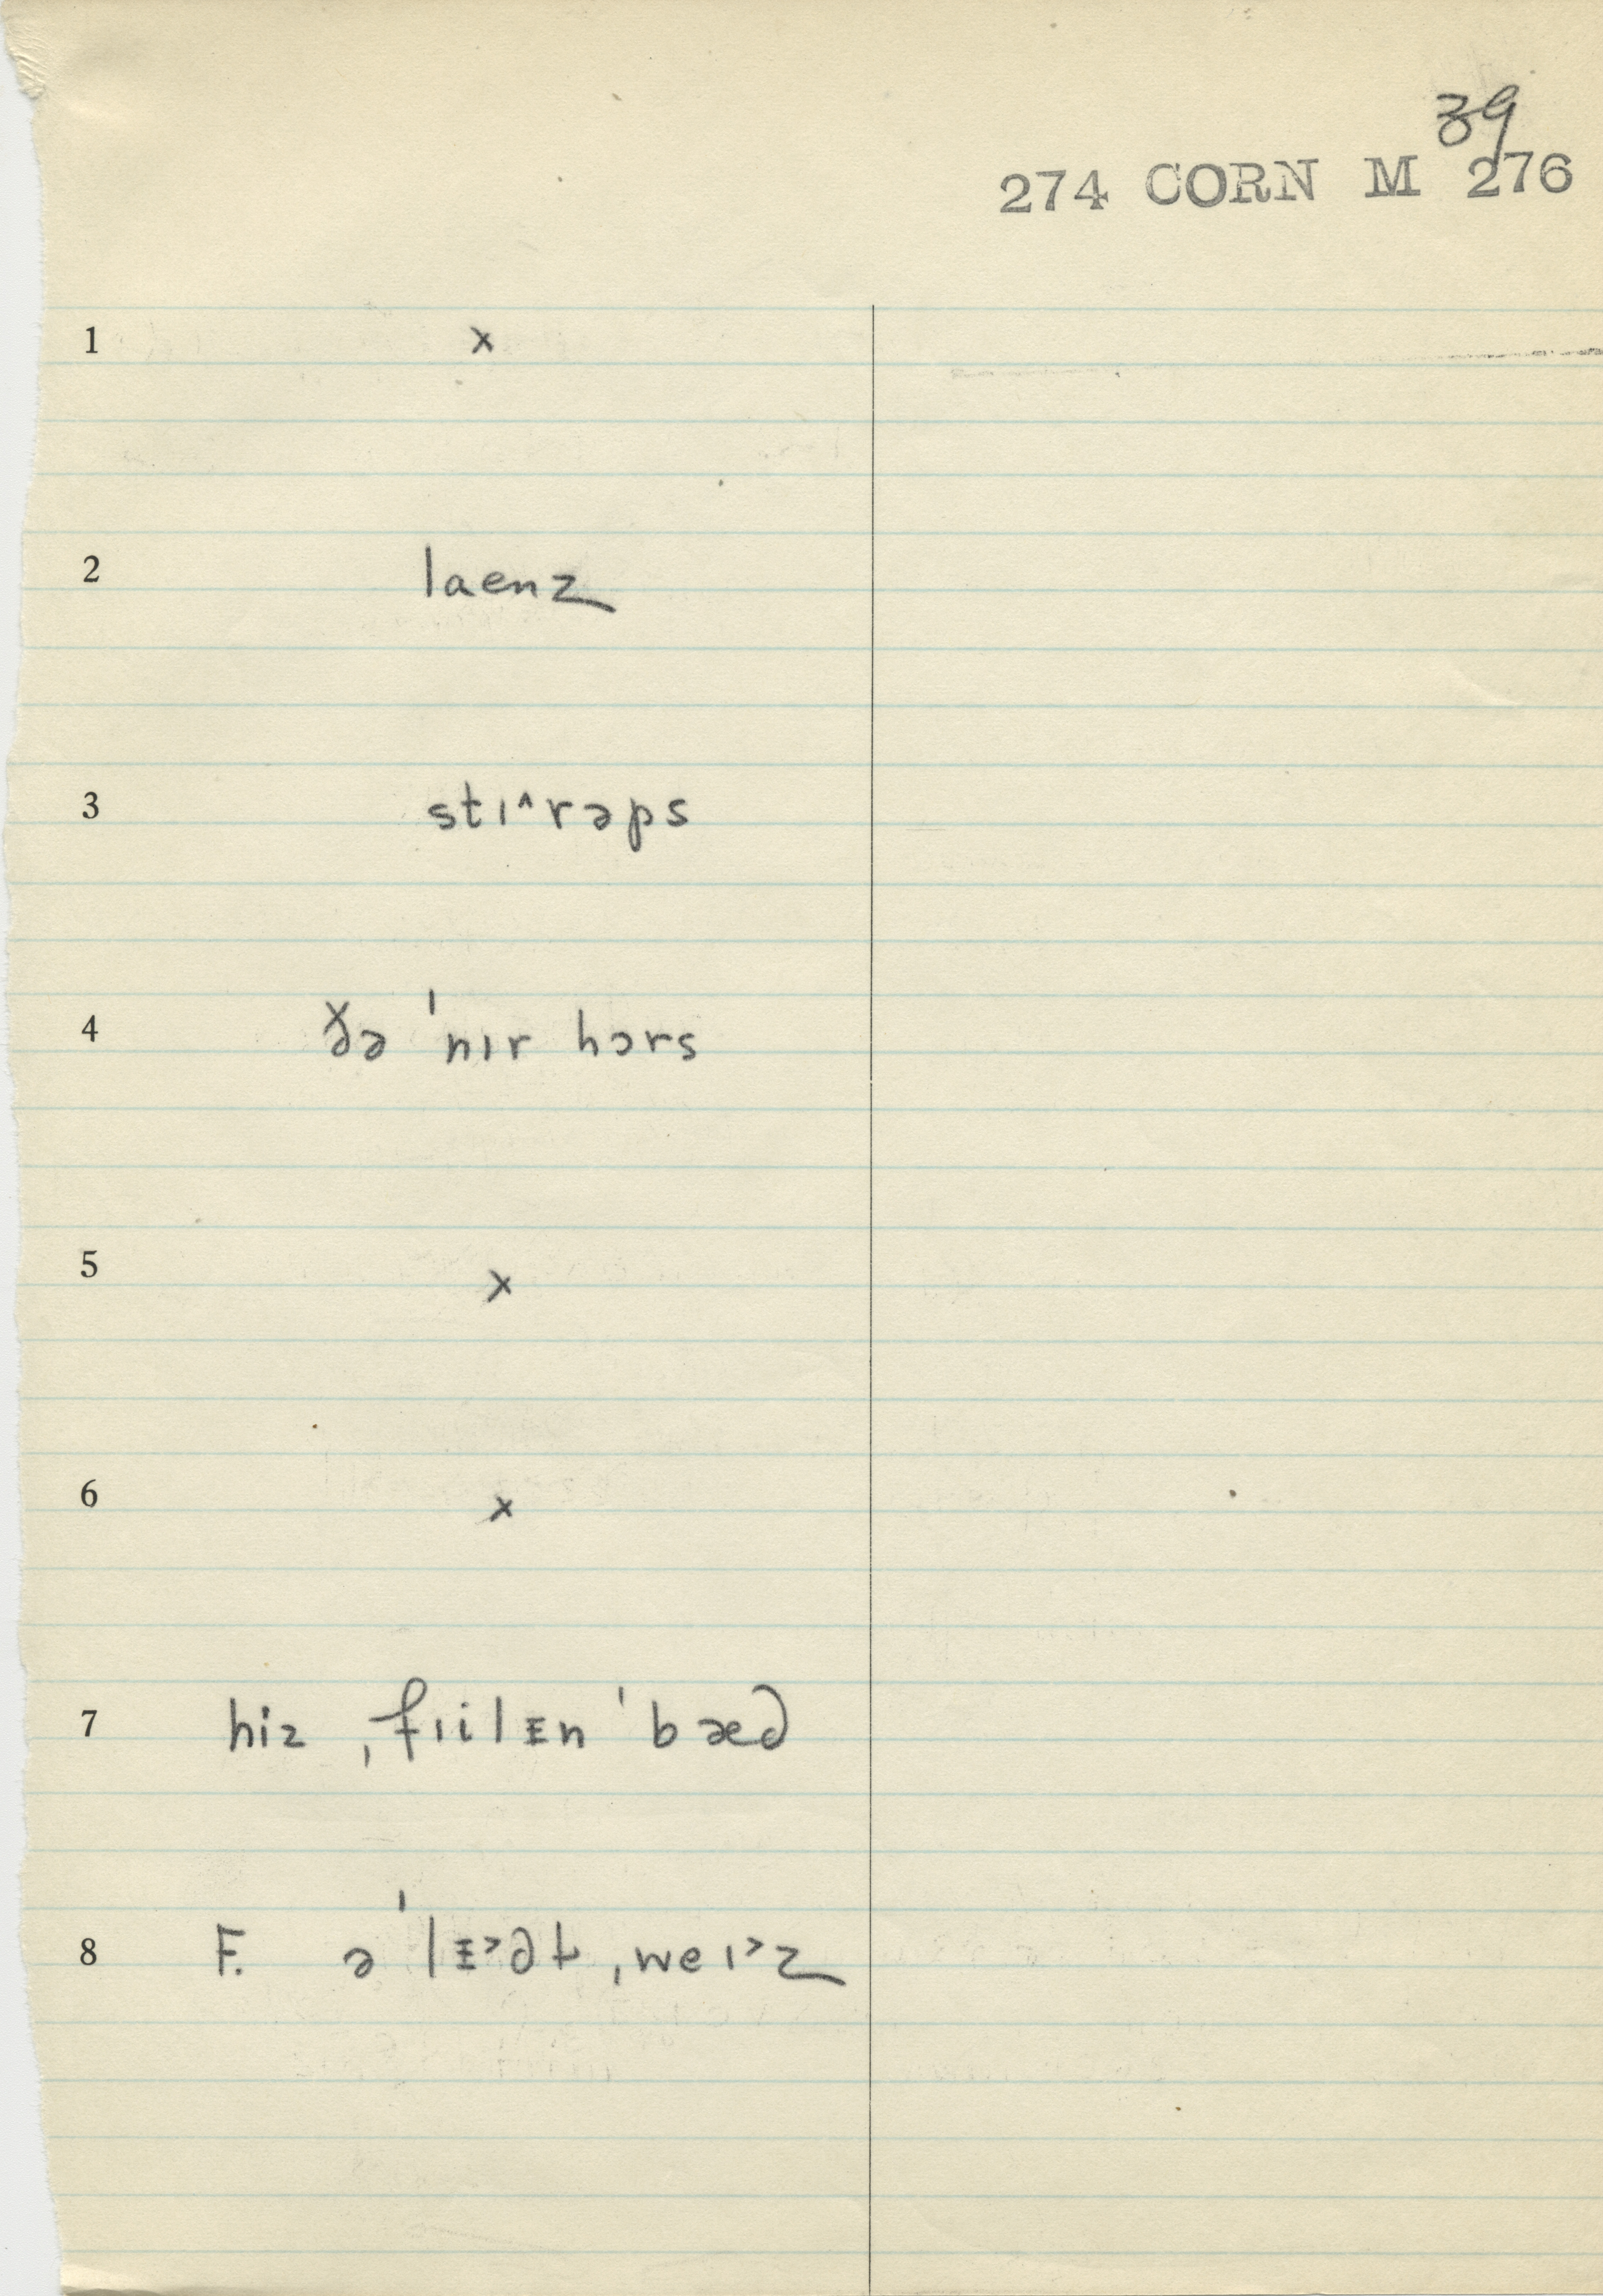 39
274 CORN M 276
1 x
2 laenz
3 stɪ˄rəps
4 ðə ˈnɪr hɔrs
5 x
6 x
7 hiz ˌfɪilᵻn ˈbæd
8 F. ə ˈlᵻ˃dt̬ ˌweɪ˃z